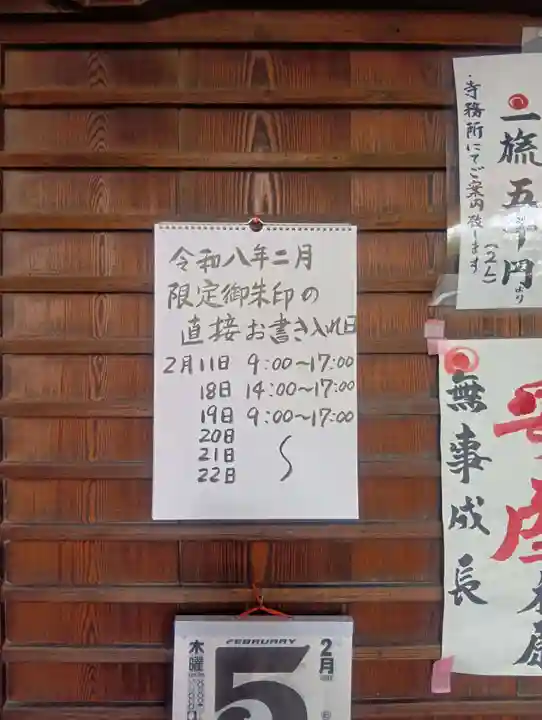 令和八年二月
限定御朱印の
直接お書き入れ日
2月11日 9:00〜17:00
18日 14:00〜17:00
19日 9:00〜17:00
20日
21日 〜
22日
一旒五千円より
・寺務所にてご案内致します
(2F)
無事成長
安産
FEBRUARY
木曜
5
2月